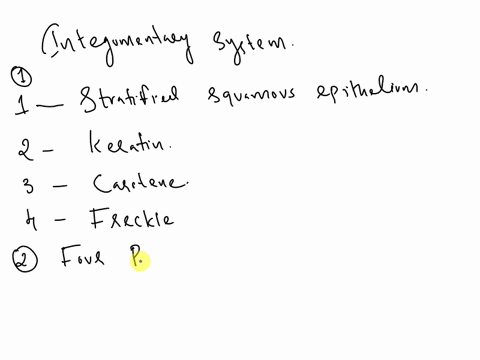 Integumentary System.
①
1 — Stratified squamous epithelium.
2 - Keratin.
3 - Carotene.
4 - Freckle
② Four P.